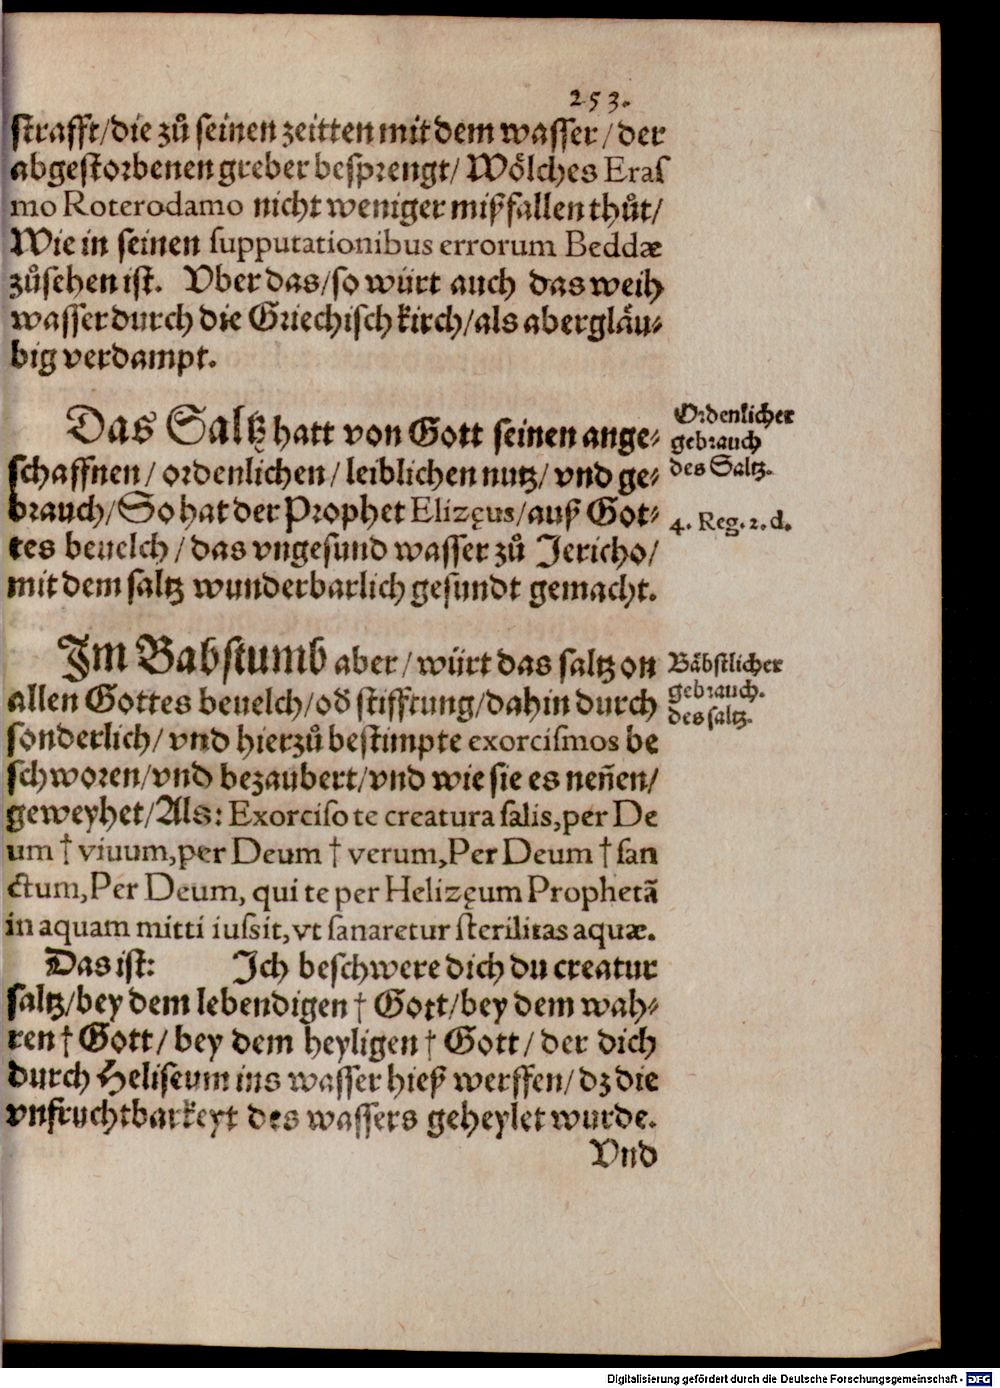 253.
strafft/die zů seinen zeitten mit dem wasser/der
abgestorbenen greber besprengt/Wölches Eras
mo Roterodamo nicht weniger mißfallen thůt/
Wie in seinen supputationibus errorum Beddæ
zůsehen ist. Vber das/so würt auch das weih
wasser durch die Griechisch kirch/als abergläu-
big verdampt.
Das Saltz hatt von Gott seinen ange-
schaffnen/ordenlichen/leiblichen nutz/vnd ge-
brauch/So hat der Prophet Elizęus/auß Got-
tes beuelch/das vngesund wasser zů Jericho/
mit dem saltz wunderbarlich gesundt gemacht.
Ordenlicher
gebrauch
des Saltz.
4. Reg. 2. d.
Im Babstumb aber/würt das saltz on
allen Gottes beuelch/oď stifftung/dahin durch
sonderlich/vnd hierzů bestimpte exorcismos be
schworen/vnd bezaubert/vnd wie sie es neñen/
geweyhet/Als: Exorciso te creatura salis, per De
um † viuum, per Deum † verum, Per Deum † san
ctum, Per Deum, qui te per Helizęum Prophetã
in aquam mitti iussit, vt sanaretur sterilitas aquæ.
Das ist: Ich beschwere dich du creatur
saltz/bey dem lebendigen † Gott/bey dem wah-
ren † Gott/bey dem heyligen † Gott/der dich
durch Heliseum ins wasser hieß werffen/dz die
vnfruchtbarkeyt des wassers geheylet wurde.
Bäbstlicher
gebrauch.
des saltz.
Vnd
Digitalisierung gefördert durch die Deutsche Forschungsgemeinschaft - DFG